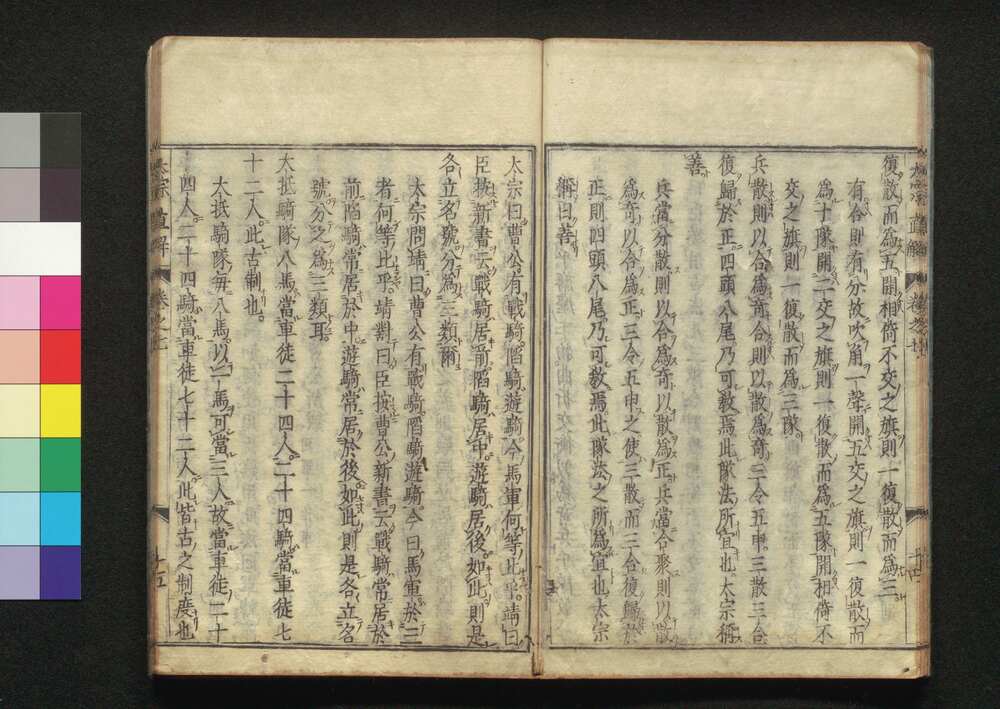 復散而爲五開相倚不交之旗則一復散而爲三
有合則有分故吹角一聲開五交之旗則一復散而
爲十隊開二交之旗則一復散而爲五隊開相倚不
交之旗則一復散而爲三隊
兵散則以合爲奇合則以散爲奇三令五申三散三合
復歸於正四頭八尾乃可敎焉此隊法所宜也太宗稱
善
兵當分散則以合爲奇以散爲正兵當合聚則以散
爲奇以合爲正三令五申之使三散而三合復歸於
正則四頭八尾乃可敎焉此隊法之所爲宜也太宗
稱曰善
太宗曰曹公有戰騎陷騎遊騎今馬軍何等比乎靖曰
臣按新書云戰騎居前陷騎居中遊騎居後如此則是
各立名號分爲三類爾
太宗問靖曰曹公有戰騎陷騎遊騎今曰馬軍於三
者何等比乎靖對曰臣按曹公新書云戰騎常居於
前陷騎常居於中遊騎常居於後如此則是各立名
號分之爲三類耳
大抵騎隊八馬當車徒二十四人二十四騎當車徒七
十二人此古制也
大抵騎隊每八馬以一馬可當三人故當車徒二十
四人二十四騎當車徒七十二人此皆古之制度也